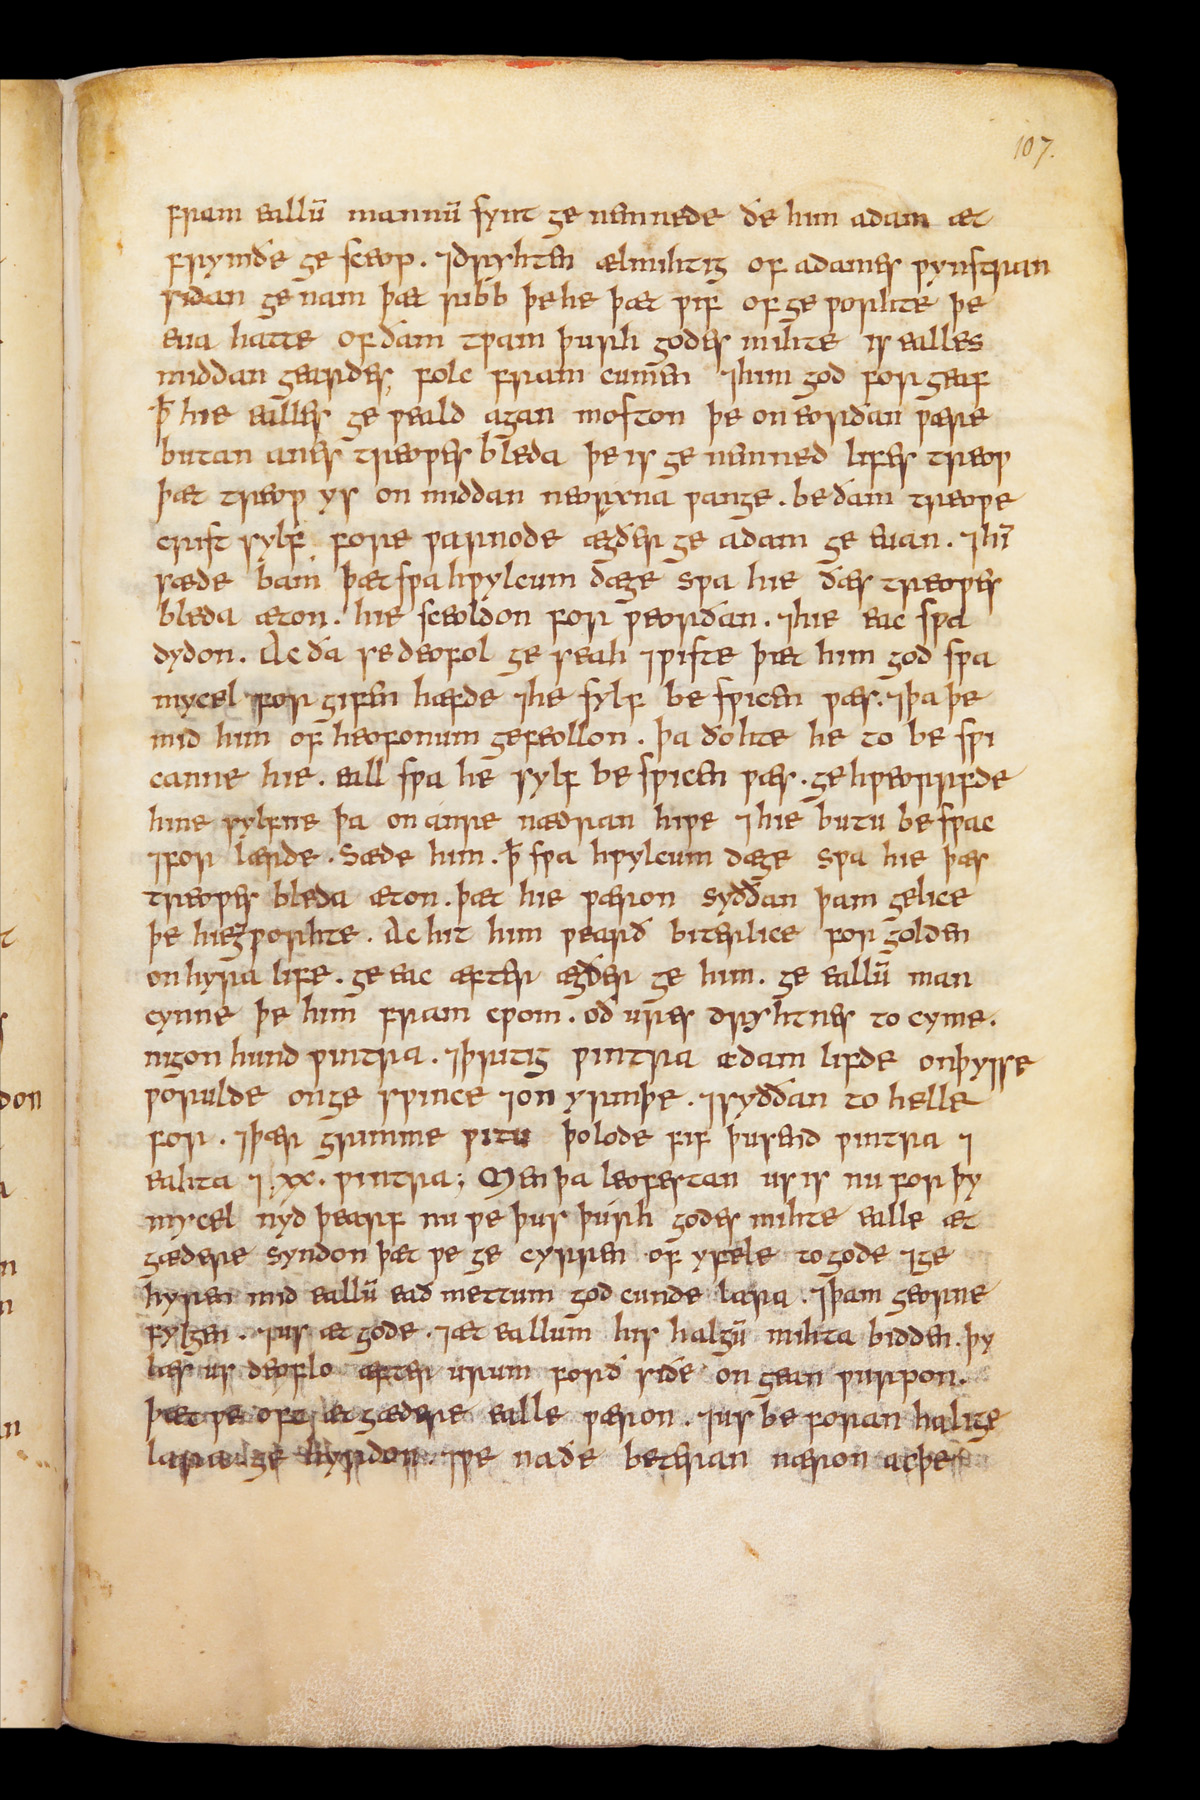 107.
fram eallū mannū synt ge nemnede ðe him adam æt
frymðe ge sceop. ⁊dryhten ælmihtig of adames wynstran
sidan ge nam þæt ribb þehe þæt wif of ge worhte þe
eua hatte ofðam twam þurh godes mihte is ealles
middan geardes, folc fram cumen ⁊him god for geaf
ꝥ hie ealles ge weald agan moston þe on eorðan wære
butan anes treowes bleda þe is ge nemned lifes treow
þæt treow ys on middan neorxna wange. be ðam treowe
crist sylf fore warnode ægðer ge adam ge euan. ⁊hī
sæde bam þæt swa hwylcum dæge swa hie ðæs treowes
bleda æton. hie sceoldon for weorðan. ⁊hie eac swa
dydon. Ac ða se deofol ge seah ⁊wiste þæt him god swa
mycel for gifen hæfde ⁊he sylf be swicen wæs. ⁊þa þe
mid him of heofonum gefeollon. þa ðohte he to be swi
canne hie. eall swa he sylf be swicen wæs. gehweorfde
hine sylfne þa on anre nædran hiwe ⁊hie butu be swac
⁊for lærde. Sæde him. ꝥ swa hwylcum dæge swa hie þæs
treowes bleda æton. þæt hie wæron syððan þam gelice
þe hie geworhte. Ac hit him wearð biterlice for golden
on hyra life. ge eac æfter ægðer ge him. ge eallū man
cynne þe him fram cwom. oð ures dryhtnes to cyme.
nigon hund wintra. ⁊þritig wintra ædam lifde on þysse
worulde on ge swince ⁊on yrmþe. ⁊syððan to helle
for. ⁊þær grimme witu þolode fif þusend wintra ⁊
eahta ⁊ .xx. wintra; Men þa leofestan us is nu for þy
mycel nyd þearf nu we þus þurh godes mihte ealle æt
gædere syndon þæt we ge cyrren of yfele to gode ⁊ge
hyren mid eallū ead mettum god cunde lara. ⁊þam georne
fylgen. ⁊us æt gode. ⁊æt eallum his halgū mihta bidden. þy
læs us deoflo æfter urum forð siðe on gean wurpon.
þæt we oft æt gædere ealle wæron. ⁊us be foran halige
lara ge hyrdon. ⁊we na ðe beteran næron ac þe